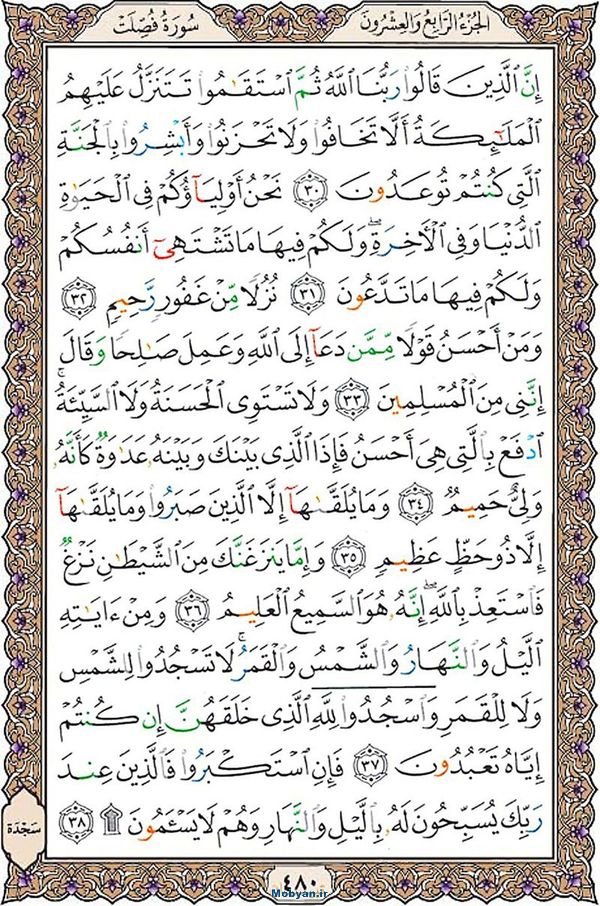 سُورَةُ فُصِّلَتْ
الجُزْءُ الرَّابِعُ وَالعِشْرُونَ
إِنَّ ٱلَّذِينَ قَالُوا۟ رَبُّنَا ٱللَّهُ ثُمَّ ٱسْتَقَٰمُوا۟ تَتَنَزَّلُ عَلَيْهِمُ
ٱلْمَلَٰٓئِكَةُ أَلَّا تَخَافُوا۟ وَلَا تَحْزَنُوا۟ وَأَبْشِرُوا۟ بِٱلْجَنَّةِ
ٱلَّتِى كُنتُمْ تُوعَدُونَ ٣٠ نَحْنُ أَوْلِيَآؤُكُمْ فِى ٱلْحَيَوٰةِ
ٱلدُّنْيَا وَفِى ٱلْءَاخِرَةِ ۖ وَلَكُمْ فِيهَا مَا تَشْتَهِىٓ أَنفُسُكُمْ
وَلَكُمْ فِيهَا مَا تَدَّعُونَ ٣١ نُزُلًا مِّنْ غَفُورٍ رَّحِيمٍ ٣٢
وَمَنْ أَحْسَنُ قَوْلًا مِّمَّن دَعَآ إِلَى ٱللَّهِ وَعَمِلَ صَٰلِحًا وَقَالَ
إِنَّنِى مِنَ ٱلْمُسْلِمِينَ ٣٣ وَلَا تَسْتَوِى ٱلْحَسَنَةُ وَلَا ٱلسَّيِّئَةُ ۚ
ٱدْفَعْ بِٱلَّتِى هِىَ أَحْسَنُ فَإِذَا ٱلَّذِى بَيْنَكَ وَبَيْنَهُۥ عَدَٰوَةٌ كَأَنَّهُۥ
وَلِىٌّ حَمِيمٌ ٣٤ وَمَا يُلَقَّىٰهَآ إِلَّا ٱلَّذِينَ صَبَرُوا۟ وَمَا يُلَقَّىٰهَآ
إِلَّا ذُو حَظٍّ عَظِيمٍ ٣٥ وَإِمَّا يَنزَغَنَّكَ مِنَ ٱلشَّيْطَٰنِ نَزْغٌ
فَٱسْتَعِذْ بِٱللَّهِ ۖ إِنَّهُۥ هُوَ ٱلسَّمِيعُ ٱلْعَلِيمُ ٣٦ وَمِنْ ءَايَٰتِهِ
ٱلَّيْلُ وَٱلنَّهَارُ وَٱلشَّمْسُ وَٱلْقَمَرُ ۚ لَا تَسْجُدُوا۟ لِلشَّمْسِ
وَلَا لِلْقَمَرِ وَٱسْجُدُوا۟ لِلَّهِ ٱلَّذِى خَلَقَهُنَّ إِن كُنتُمْ
إِيَّاهُ تَعْبُدُونَ ٣٧ فَإِنِ ٱسْتَكْبَرُوا۟ فَٱلَّذِينَ عِندَ
رَبِّكَ يُسَبِّحُونَ لَهُۥ بِٱلَّيْلِ وَٱلنَّهَارِ وَهُمْ لَا يَسْـَٔمُونَ ۩ ٣٨
سَجْدَة
٤٨٠
Mobyan.ir